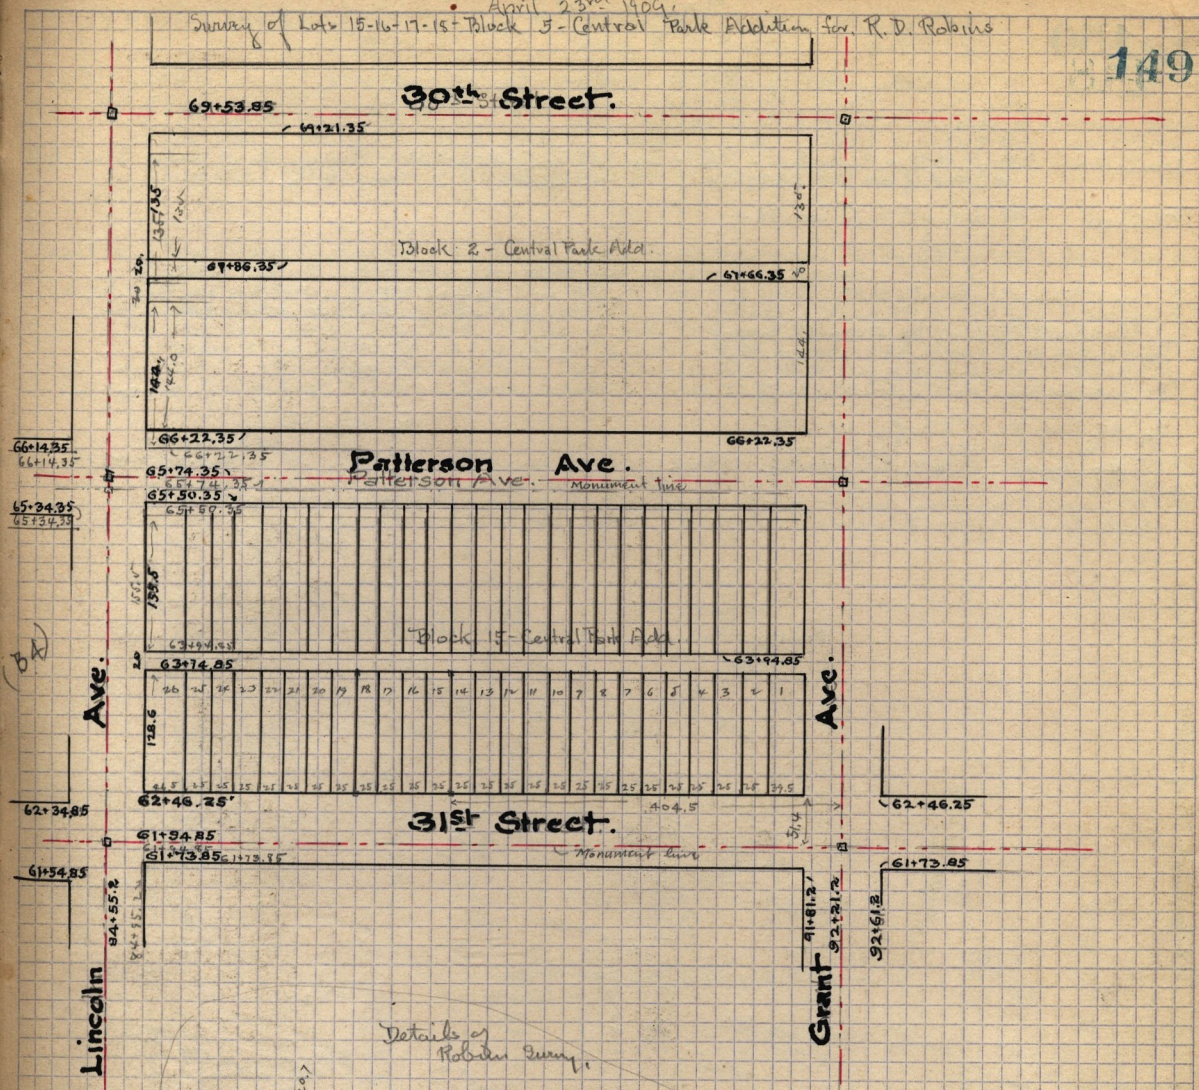 April 23rd 1909.
Survey of Lots 15-16-17-18-Block 5-Central Park Addition for R. D. Robins
149
30th Street.
69+53.85
69+21.35
135
135
135
135
Block 2 - Central Park Add.
20.
20
67+86.35
67+66.35
20
144.
144.0
144.
66+14.35
66+14.35
66+22.35
66+22.35
66+22.35
Patterson Ave.
Patterson Ave.
Monument line
65+74.35
65+74.35
65+50.35
65+50.35
65+34.35
65+34.35
155.5
155.5
Block 15-Central Park Add.
63+94.85
63+94.85
20
63+74.85
26 25 24 23 22 21 20 19 18 17 16 15 14 13 12 11 10 9 8 7 6 5 4 3 2 1
128.6
25 25 25 25 25 25 25 25 25 25 25 25 25 25 25 25 25 25 25 25 25 25 25 25 39.5
62+34.85
62+46.25
404.5
62+46.25
31st Street.
51.4
61+94.85
61+73.85
61+73.85
Monument line
61+73.85
61+54.85
84+55.2
84+55.2
91+81.2
92+21.2
92+61.2
Lincoln Ave.
Grant Ave.
Details of
Robins Survey.